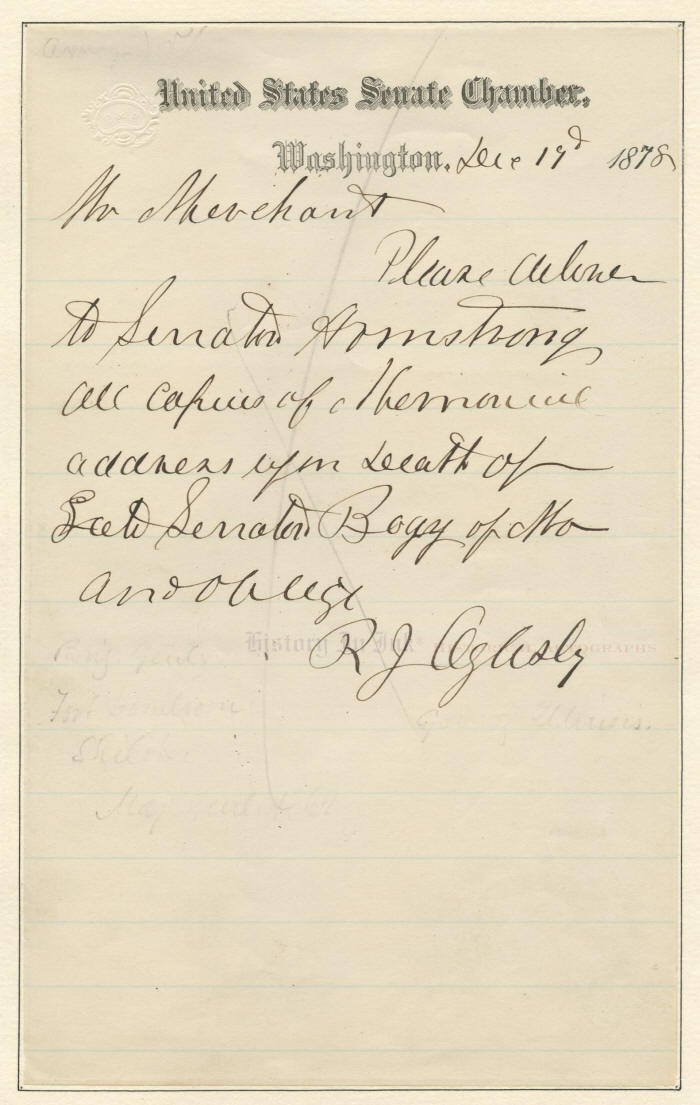 United States Senate Chamber.
Washington. Dec 19d 1878
Mr Merchant
Please deliver
to Senator Armstrong
all copies of Memorial
address upon Death of
Late Senator Bogy of Mo
and oblige
History In Ink®
R J Oglesby
Brig Genl
Fort Donelson
Gov of Illinois.
Shiloh
Maj Genl